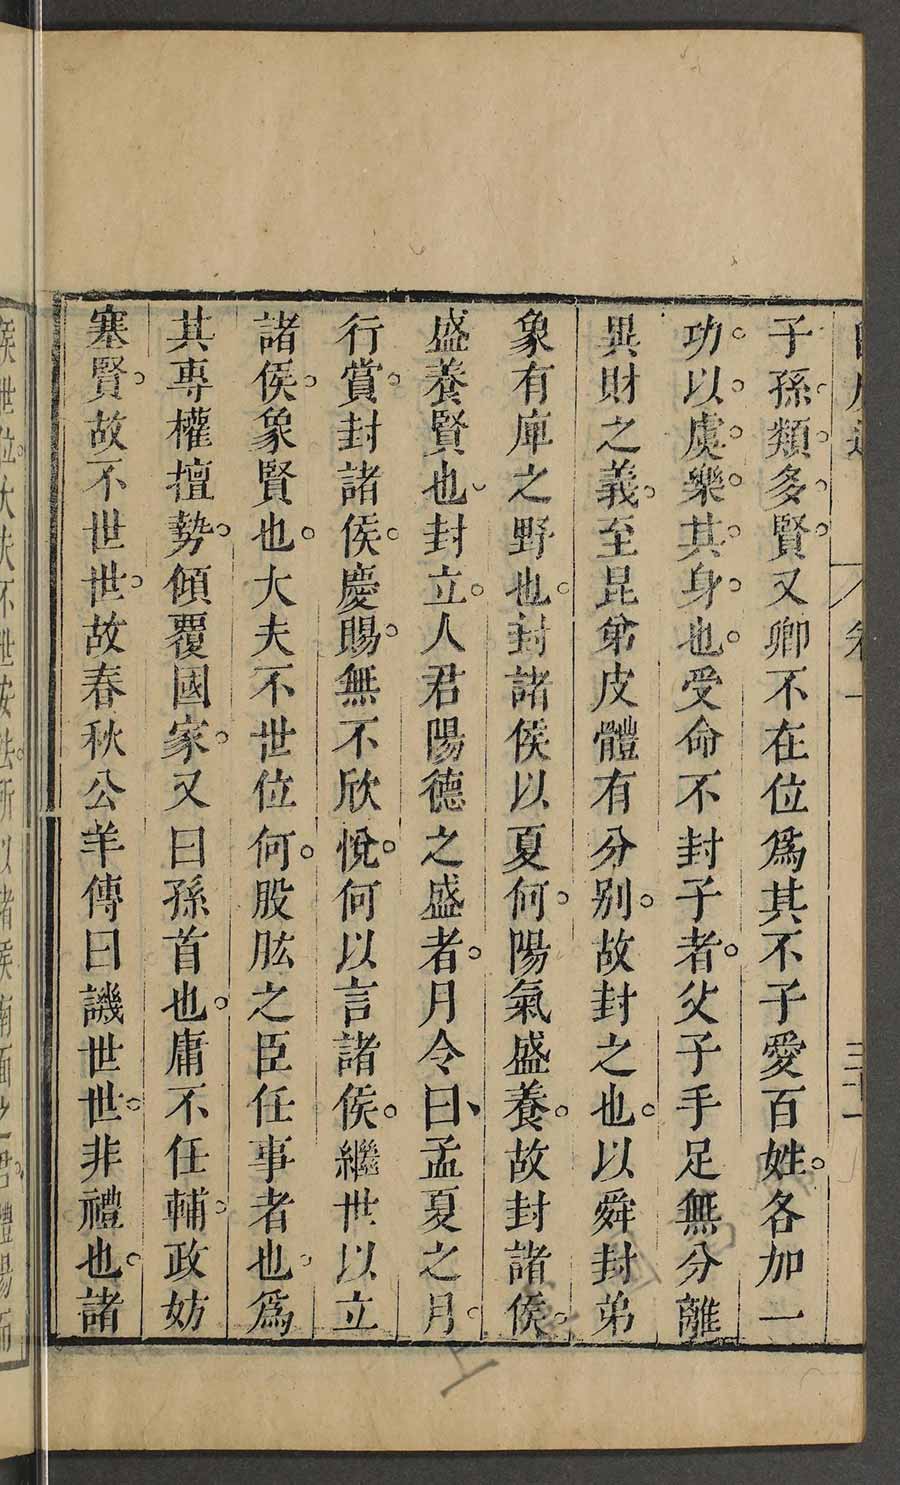 子孫。類。多。賢。又卿不在位爲其不子愛百姓。各加一
功。以。虞。樂。其。身。也。受命不封子者。父子手足無分離
異財之義。至昆弟皮體有分别。故封之也。以舜封弟
象有庳之野也。封諸侯以夏何。陽氣盛養。故封諸侯。
盛養賢也。封立。人君陽德之盛者。月令曰、孟夏之月。
行賞。封諸侯。慶賜。無不欣悅。何以言諸侯。繼世以立
諸侯。象賢也。大夫不世位何。股肱之臣任事者也。爲
其專權擅勢。傾覆國家。又曰孫首也。庸不任輔。政妨
塞賢。故不世世。故春秋公羊傳曰譏世世。非禮也。諸
侯世位。大夫不世安法。所以諸侯南面之君。體陽而